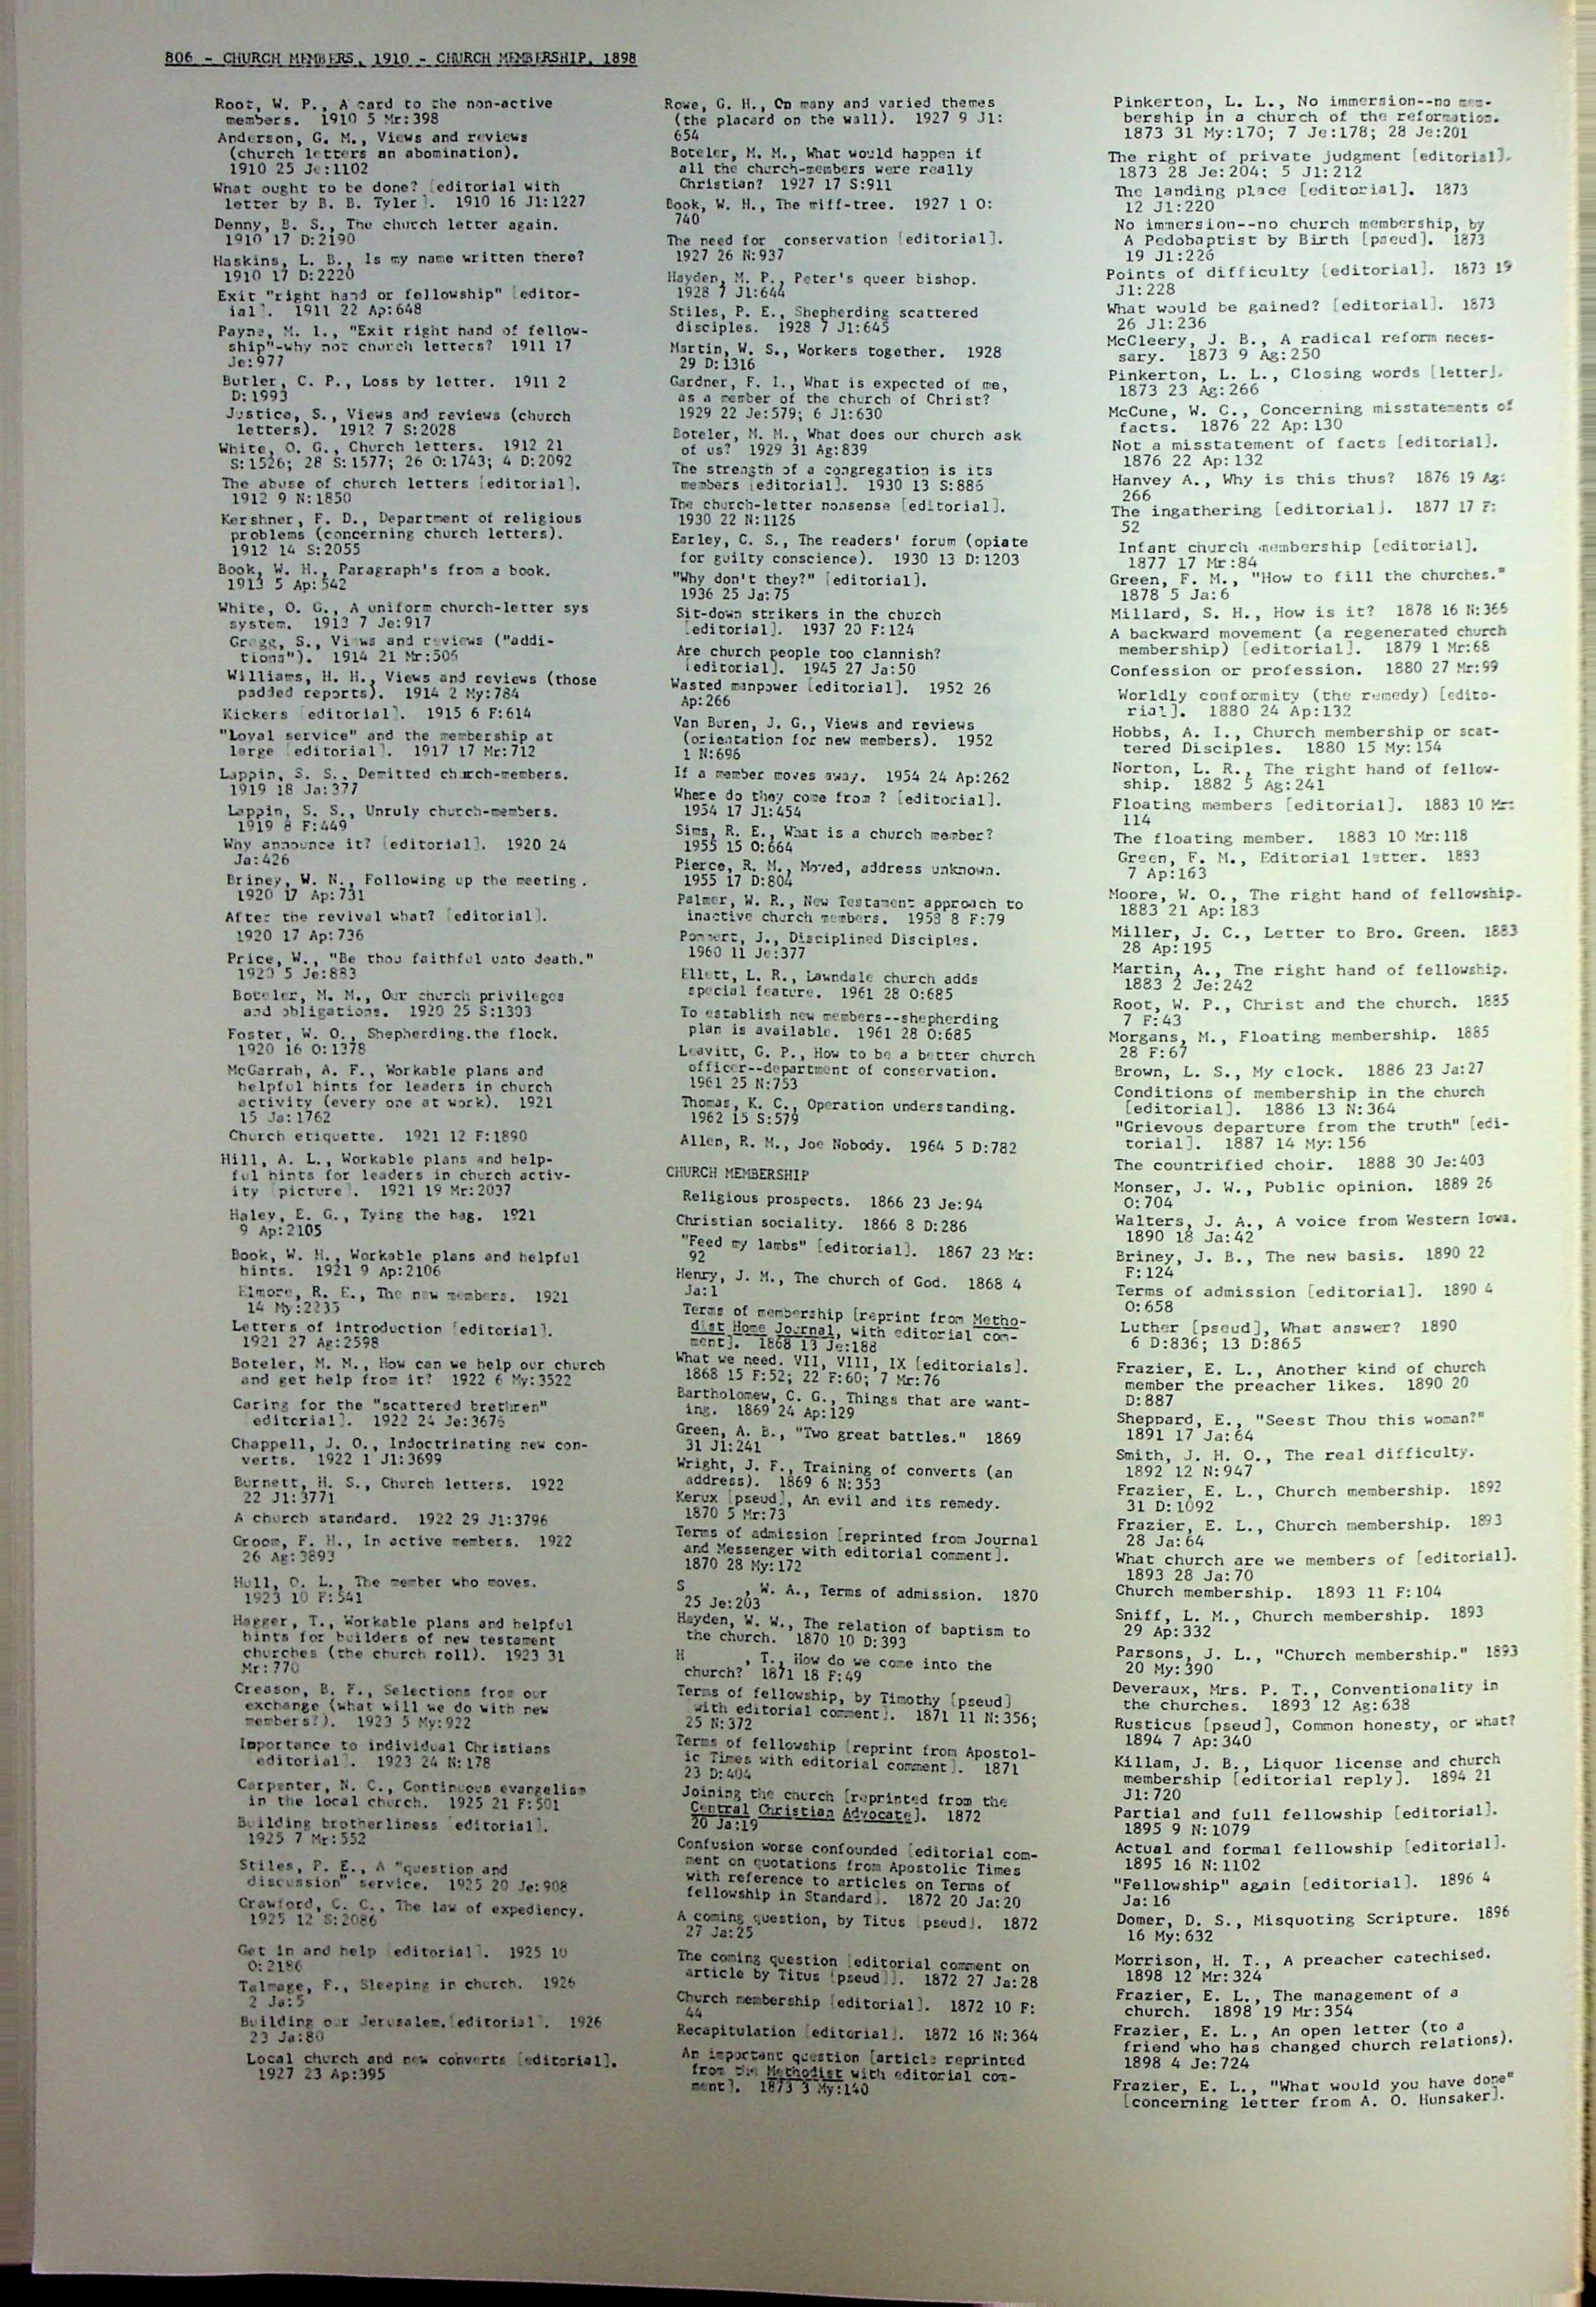 806 - CHURCH MEMBERS, 1910 - CHURCH MEMBERSHIP, 1898
Root, W. P., A card to the non-active
members. 1910 5 Mr:398
Anderson, G. M., Views and reviews
(church letters an abomination).
1910 25 Je:1102
What ought to be done? [editorial with
letter by B. B. Tyler]. 1910 16 Jl:1227
Denny, B. S., The church letter again.
1910 17 D:2190
Haskins, L. B., Is my name written there?
1910 17 D:2220
Exit "right hand or fellowship" [editor-
ial]. 1911 22 Ap:648
Payne, M. I., "Exit right hand of fellow-
ship"-why not church letters? 1911 17
Je:977
Butler, C. P., Loss by letter. 1911 2
D:1993
Justice, S., Views and reviews (church
letters). 1912 7 S:2028
White, O. G., Church letters. 1912 21
S:1526; 28 S:1577; 26 O:1743; 4 D:2092
The abuse of church letters [editorial].
1912 9 N:1850
Kershner, F. D., Department of religious
problems (concerning church letters).
1912 14 S:2055
Book, W. H., Paragraph's from a book.
1913 5 Ap:542
White, O. G., A uniform church-letter sys
system. 1913 7 Je:917
Gregg, S., Views and reviews ("addi-
tions"). 1914 21 Mr:506
Williams, H. H., Views and reviews (those
padded reports). 1914 2 My:784
Kickers [editorial]. 1915 6 F:614
"Loyal service" and the membership at
large [editorial]. 1917 17 Mr:712
Lappin, S. S., Demitted church-members.
1919 18 Ja:377
Lappin, S. S., Unruly church-members.
1919 8 F:449
Why announce it? [editorial]. 1920 24
Ja:426
Briney, W. N., Following up the meeting.
1920 17 Ap:731
After the revival what? [editorial].
1920 17 Ap:736
Price, W., "Be thou faithful unto death."
1920 5 Je:883
Boteler, M. M., Our church privileges
and obligations. 1920 25 S:1303
Foster, W. O., Shepherding.the flock.
1920 16 O:1378
McGarrah, A. F., Workable plans and
helpful hints for leaders in church
activity (every one at work). 1921
15 Ja:1762
Church etiquette. 1921 12 F:1890
Hill, A. L., Workable plans and help-
ful hints for leaders in church activ-
ity [picture]. 1921 19 Mr:2037
Haley, E. G., Tying the hag. 1921
9 Ap:2105
Book, W. H., Workable plans and helpful
hints. 1921 9 Ap:2106
Elmore, R. E., The new members. 1921
14 My:2235
Letters of introduction [editorial].
1921 27 Ag:2598
Boteler, M. M., How can we help our church
and get help from it? 1922 6 My:3522
Caring for the "scattered brethren"
[editorial]. 1922 24 Je:3676
Chappell, J. O., Indoctrinating new con-
verts. 1922 1 Jl:3699
Burnett, H. S., Church letters. 1922
22 Jl:3771
A church standard. 1922 29 Jl:3796
Groom, F. H., In active members. 1922
26 Ag:3893
Hull, O. L., The member who moves.
1923 10 F:541
Hagger, T., Workable plans and helpful
hints for builders of new testament
churches (the church roll). 1923 31
Mr:770
Creason, B. F., Selections from our
exchange (what will we do with new
members?). 1923 5 My:922
Importance to individual Christians
[editorial]. 1923 24 N:178
Carpenter, N. C., Continuous evangelism
in the local church. 1925 21 F:501
Building brotherliness [editorial].
1925 7 Mr:552
Stiles, P. E., A "question and
discussion" service. 1925 20 Je:908
Crawford, C. C., The law of expediency.
1925 12 S:2086
Get in and help [editorial]. 1925 10
O:2186
Talmage, F., Sleeping in church. 1926
2 Ja:5
Building our Jerusalem.[editorial]. 1926
23 Ja:80
Local church and new converts [editorial].
1927 23 Ap:395
Rowe, G. H., On many and varied themes
(the placard on the wall). 1927 9 Jl:
654
Boteler, M. M., What would happen if
all the church-members were really
Christian? 1927 17 S:911
Book, W. H., The miff-tree. 1927 1 O:
740
The need for conservation [editorial].
1927 26 N:937
Hayden, M. P., Peter's queer bishop.
1928 7 Jl:644
Stiles, P. E., Shepherding scattered
disciples. 1928 7 Jl:645
Martin, W. S., Workers together. 1928
29 D:1316
Gardner, F. I., What is expected of me,
as a member of the church of Christ?
1929 22 Je:579; 6 Jl:630
Boteler, M. M., What does our church ask
of us? 1929 31 Ag:839
The strength of a congregation is its
members [editorial]. 1930 13 S:886
The church-letter nonsense [editorial].
1930 22 N:1126
Earley, C. S., The readers' forum (opiate
for guilty conscience). 1930 13 D:1203
"Why don't they?" [editorial].
1936 25 Ja:75
Sit-down strikers in the church
[editorial]. 1937 20 F:124
Are church people too clannish?
[editorial]. 1945 27 Ja:50
Wasted manpower [editorial]. 1952 26
Ap:266
Van Buren, J. G., Views and reviews
(orientation for new members). 1952
1 N:696
If a member moves away. 1954 24 Ap:262
Where do they come from ? [editorial].
1954 17 Jl:454
Sims, R. E., What is a church member?
1955 15 O:664
Pierce, R. M., Moved, address unknown.
1955 17 D:804
Palmer, W. R., New Testament approach to
inactive church members. 1958 8 F:79
Pommert, J., Disciplined Disciples.
1960 11 Je:377
Ellett, L. R., Lawndale church adds
special feature. 1961 28 O:685
To establish new members--shepherding
plan is available. 1961 28 O:685
Leavitt, G. P., How to be a better church
officer--department of conservation.
1961 25 N:753
Thomas, K. C., Operation understanding.
1962 15 S:579
Allen, R. M., Joe Nobody. 1964 5 D:782
CHURCH MEMBERSHIP
Religious prospects. 1866 23 Je:94
Christian sociality. 1866 8 D:286
"Feed my lambs" [editorial]. 1867 23 Mr:
92
Henry, J. M., The church of God. 1868 4
Ja:1
Terms of membership [reprint from Metho-
dist Home Journal, with editorial com-
ment]. 1868 13 Je:188
What we need. VII, VIII, IX [editorials].
1868 15 F:52; 22 F:60; 7 Mr:76
Bartholomew, C. G., Things that are want-
ing. 1869 24 Ap:129
Green, A. B., "Two great battles." 1869
31 Jl:241
Wright, J. F., Training of converts (an
address). 1869 6 N:353
Kerux [pseud], An evil and its remedy.
1870 5 Mr:73
Terms of admission [reprinted from Journal
and Messenger with editorial comment].
1870 28 My:172
S , W. A., Terms of admission. 1870
25 Je:203
Hayden, W. W., The relation of baptism to
the church. 1870 10 D:393
H , T., How do we come into the
church? 1871 18 F:49
Terms of fellowship, by Timothy [pseud]
with editorial comment]. 1871 11 N:356;
25 N:372
Terms of fellowship [reprint from Apostol-
ic Times with editorial comment]. 1871
23 D:404
Joining the church [reprinted from the
Central Christian Advocate]. 1872
20 Ja:19
Confusion worse confounded [editorial com-
ment on quotations from Apostolic Times
with reference to articles on Terms of
fellowship in Standard]. 1872 20 Ja:20
A coming question, by Titus [pseud]. 1872
27 Ja:25
The coming question [editorial comment on
article by Titus [pseud]]. 1872 27 Ja:28
Church membership [editorial]. 1872 10 F:
44
Recapitulation [editorial]. 1872 16 N:364
An important question [article reprinted
from the Methodist with editorial com-
ment]. 1873 3 My:140
Pinkerton, L. L., No immersion--no mem-
bership in a church of the reformation.
1873 31 My:170; 7 Je:178; 28 Je:201
The right of private judgment [editorial].
1873 28 Je:204; 5 Jl:212
The landing place [editorial]. 1873
12 Jl:220
No immersion--no church membership, by
A Pedobaptist by Birth [pseud]. 1873
19 Jl:226
Points of difficulty [editorial]. 1873 19
Jl:228
What would be gained? [editorial]. 1873
26 Jl:236
McCleery, J. B., A radical reform neces-
sary. 1873 9 Ag:250
Pinkerton, L. L., Closing words [letter].
1873 23 Ag:266
McCune, W. C., Concerning misstatements of
facts. 1876 22 Ap:130
Not a misstatement of facts [editorial].
1876 22 Ap:132
Hanvey A., Why is this thus? 1876 19 Ag:
266
The ingathering [editorial]. 1877 17 F:
52
Infant church membership [editorial].
1877 17 Mr:84
Green, F. M., "How to fill the churches."
1878 5 Ja:6
Millard, S. H., How is it? 1878 16 N:366
A backward movement (a regenerated church
membership) [editorial]. 1879 1 Mr:68
Confession or profession. 1880 27 Mr:99
Worldly conformity (the remedy) [edito-
rial]. 1880 24 Ap:132
Hobbs, A. I., Church membership or scat-
tered Disciples. 1880 15 My:154
Norton, L. R., The right hand of fellow-
ship. 1882 5 Ag:241
Floating members [editorial]. 1883 10 Mr:
114
The floating member. 1883 10 Mr:118
Green, F. M., Editorial letter. 1883
7 Ap:163
Moore, W. O., The right hand of fellowship.
1883 21 Ap:183
Miller, J. C., Letter to Bro. Green. 1883
28 Ap:195
Martin, A., The right hand of fellowship.
1883 2 Je:242
Root, W. P., Christ and the church. 1885
7 F:43
Morgans, M., Floating membership. 1885
28 F:67
Brown, L. S., My clock. 1886 23 Ja:27
Conditions of membership in the church
[editorial]. 1886 13 N:364
"Grievous departure from the truth" [edi-
torial]. 1887 14 My:156
The countrified choir. 1888 30 Je:403
Monser, J. W., Public opinion. 1889 26
O:704
Walters, J. A., A voice from Western Iowa.
1890 18 Ja:42
Briney, J. B., The new basis. 1890 22
F:124
Terms of admission [editorial]. 1890 4
O:658
Luther [pseud], What answer? 1890
6 D:836; 13 D:865
Frazier, E. L., Another kind of church
member the preacher likes. 1890 20
D:887
Sheppard, E., "Seest Thou this woman?"
1891 17 Ja:64
Smith, J. H. O., The real difficulty.
1892 12 N:947
Frazier, E. L., Church membership. 1892
31 D:1092
Frazier, E. L., Church membership. 1893
28 Ja:64
What church are we members of [editorial].
1893 28 Ja:70
Church membership. 1893 11 F:104
Sniff, L. M., Church membership. 1893
29 Ap:332
Parsons, J. L., "Church membership." 1893
20 My:390
Deveraux, Mrs. P. T., Conventionality in
the churches. 1893 12 Ag:638
Rusticus [pseud], Common honesty, or what?
1894 7 Ap:340
Killam, J. B., Liquor license and church
membership [editorial reply]. 1894 21
Jl:720
Partial and full fellowship [editorial].
1895 9 N:1079
Actual and formal fellowship [editorial].
1895 16 N:1102
"Fellowship" again [editorial]. 1896 4
Ja:16
Domer, D. S., Misquoting Scripture. 1896
16 My:632
Morrison, H. T., A preacher catechised.
1898 12 Mr:324
Frazier, E. L., The management of a
church. 1898 19 Mr:354
Frazier, E. L., An open letter (to a
friend who has changed church relations).
1898 4 Je:724
Frazier, E. L., "What would you have done"
[concerning letter from A. O. Hunsaker].